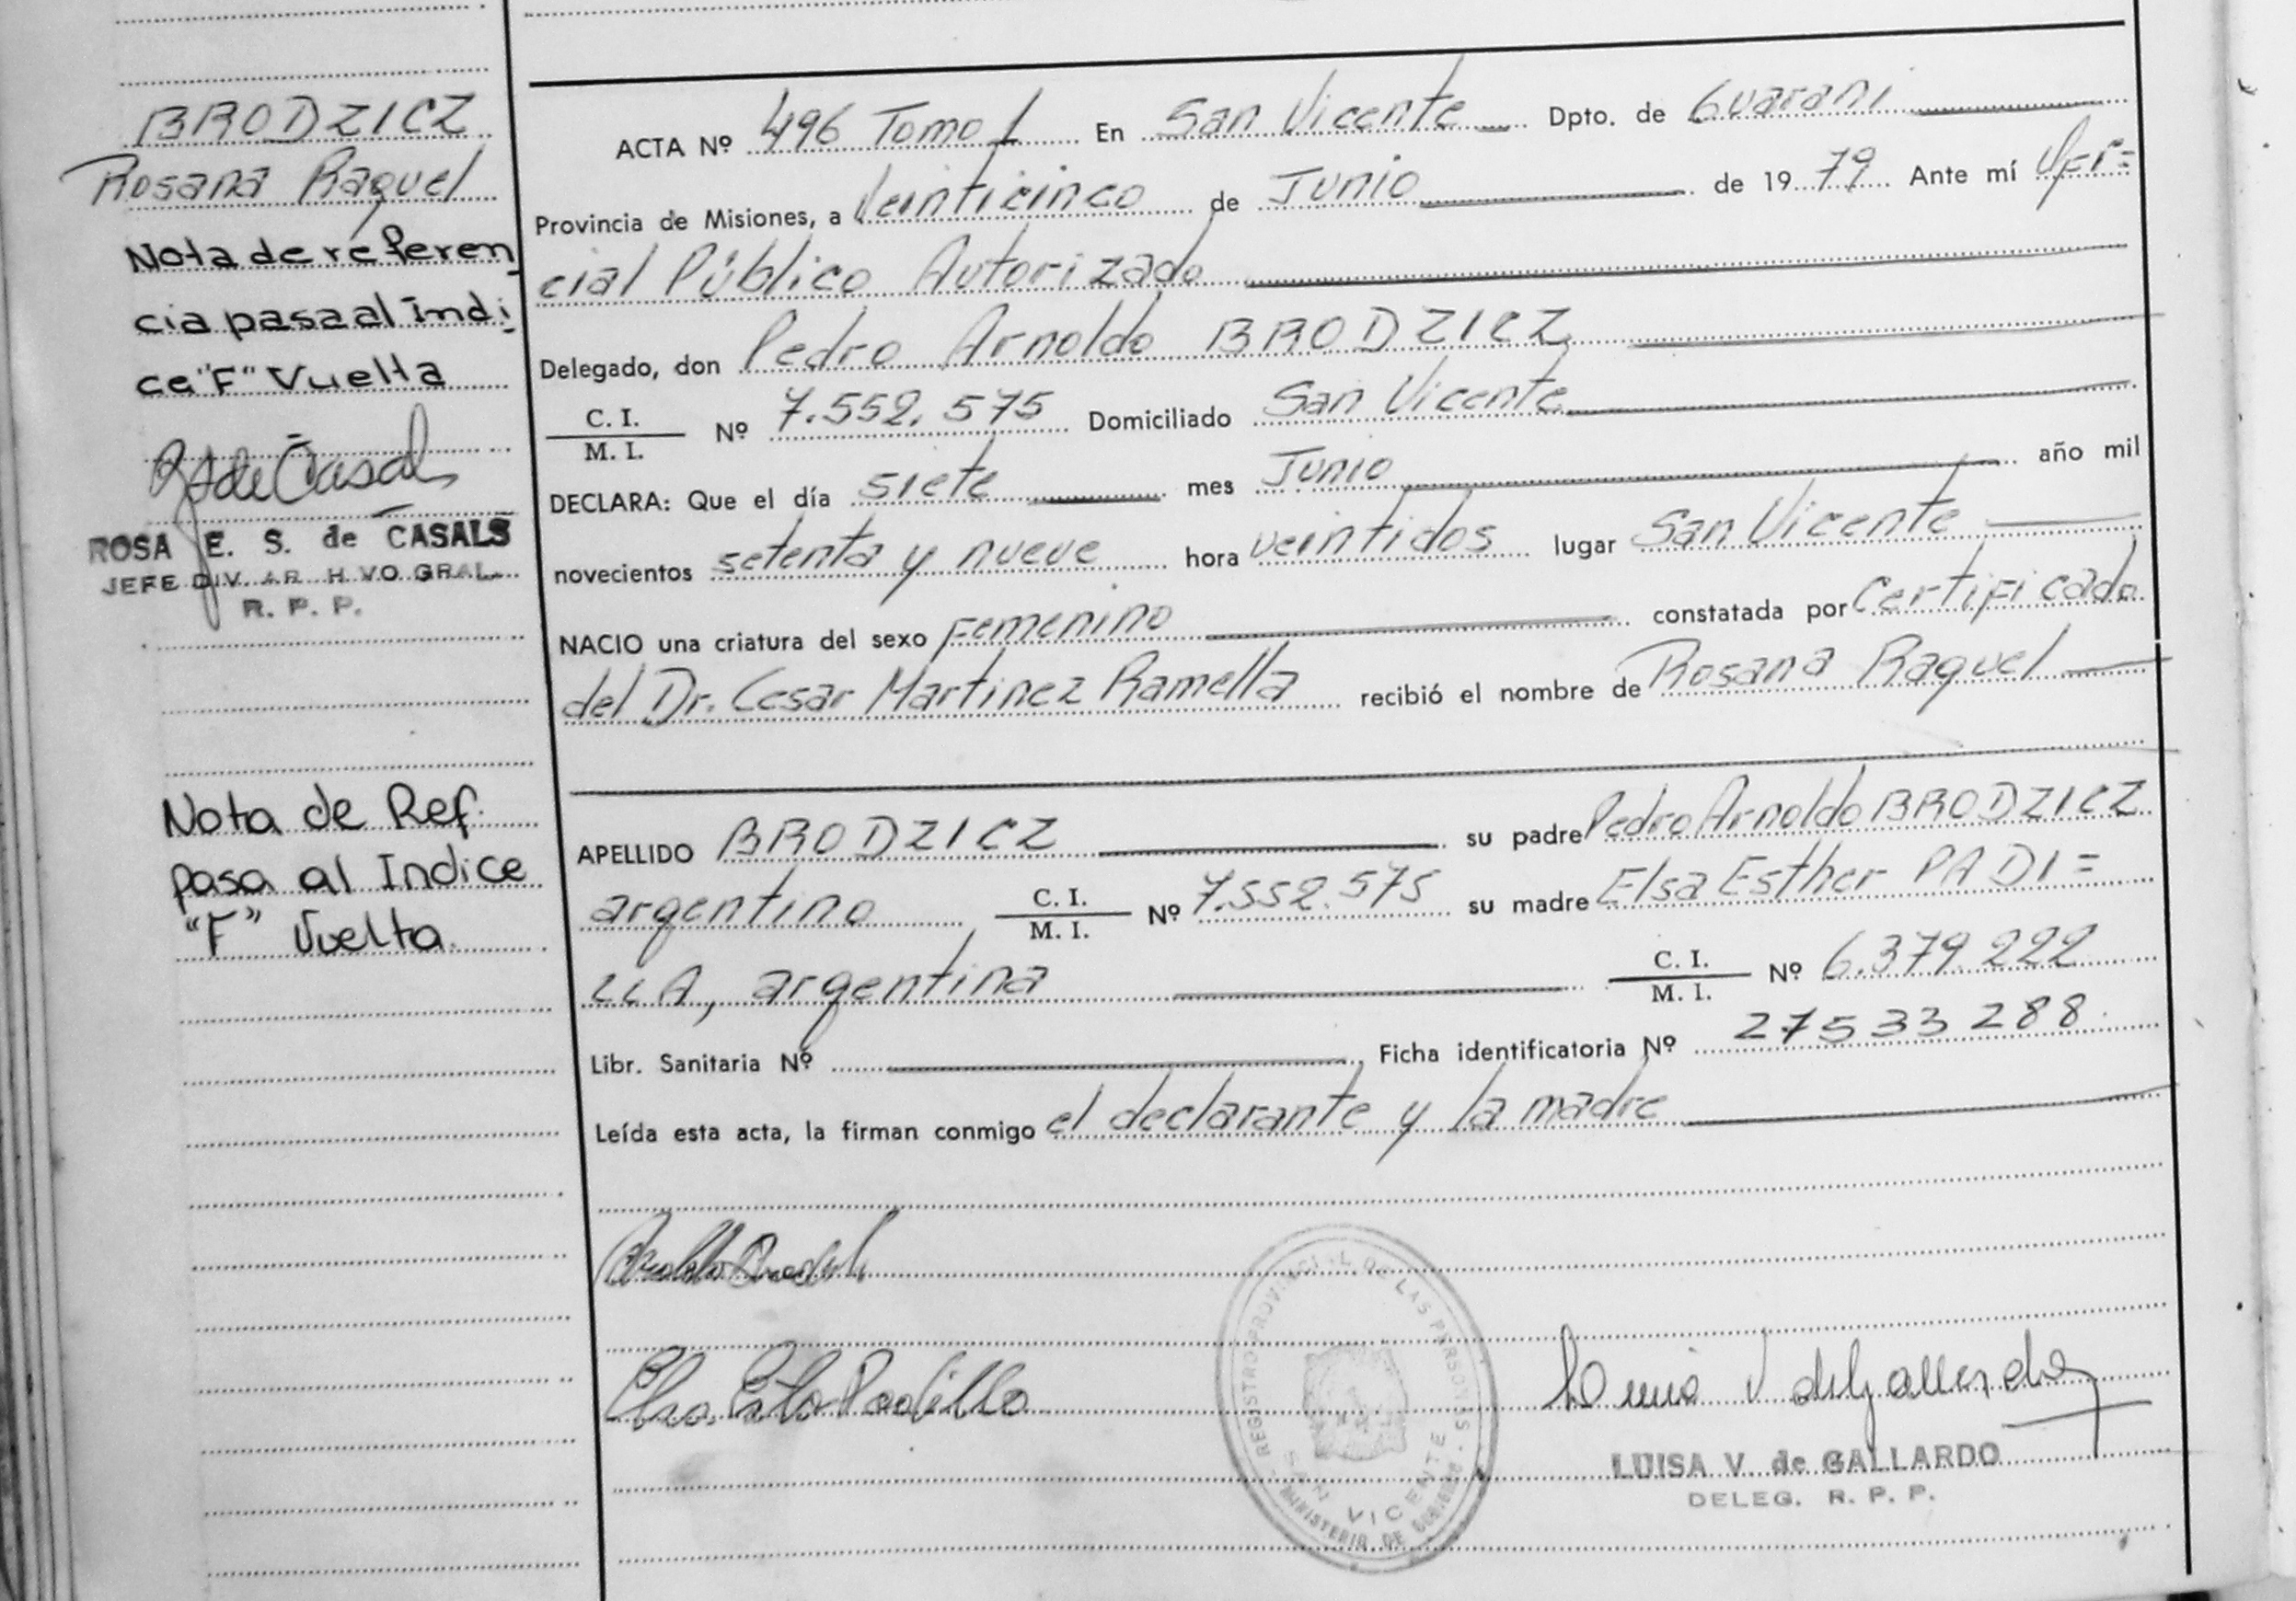 BRODZICZ
Rosana Raquel
Nota de referen
cia pasa al Indi
ce "F" Vuelta
ROSA E. S. de CASALS
JEFE DIV. AR H VO GRAL.
R. P. P.
Nota de Ref.
pasa al Indice
"F" Vuelta.
ACTA Nº 496 Tomo I En San Vicente Dpto. de Guaraní
Provincia de Misiones, a Veinticinco de Junio de 1979 Ante mí Ofi=
cial Público Autorizado
Delegado, don Pedro Arnoldo BRODZICZ
C. I.
M. I. Nº 7.552.575 Domiciliado San Vicente
DECLARA: Que el día siete mes Junio año mil
novecientos setenta y nueve hora veintidos lugar San Vicente
NACIO una criatura del sexo Femenino constatada por Certificado
del Dr. Cesar Martinez Ramella recibió el nombre de Rosana Raquel
APELLIDO BRODZICZ su padre Pedro Arnoldo BRODZICZ
argentino C. I.
M. I. Nº 7.552.575 su madre Elsa Esther PADI=
LLA, argentina C. I.
M. I. Nº 6.379.222
Libr. Sanitaria Nº Ficha identificatoria Nº 27533288
Leída esta acta, la firman conmigo el declarante y la madre
REGISTRO PROVINCIAL DE LAS PERSONAS
SAN VICENTE
MINISTERIO DE GOBIERNO
LUISA V. de GALLARDO
DELEG. R. P. P.